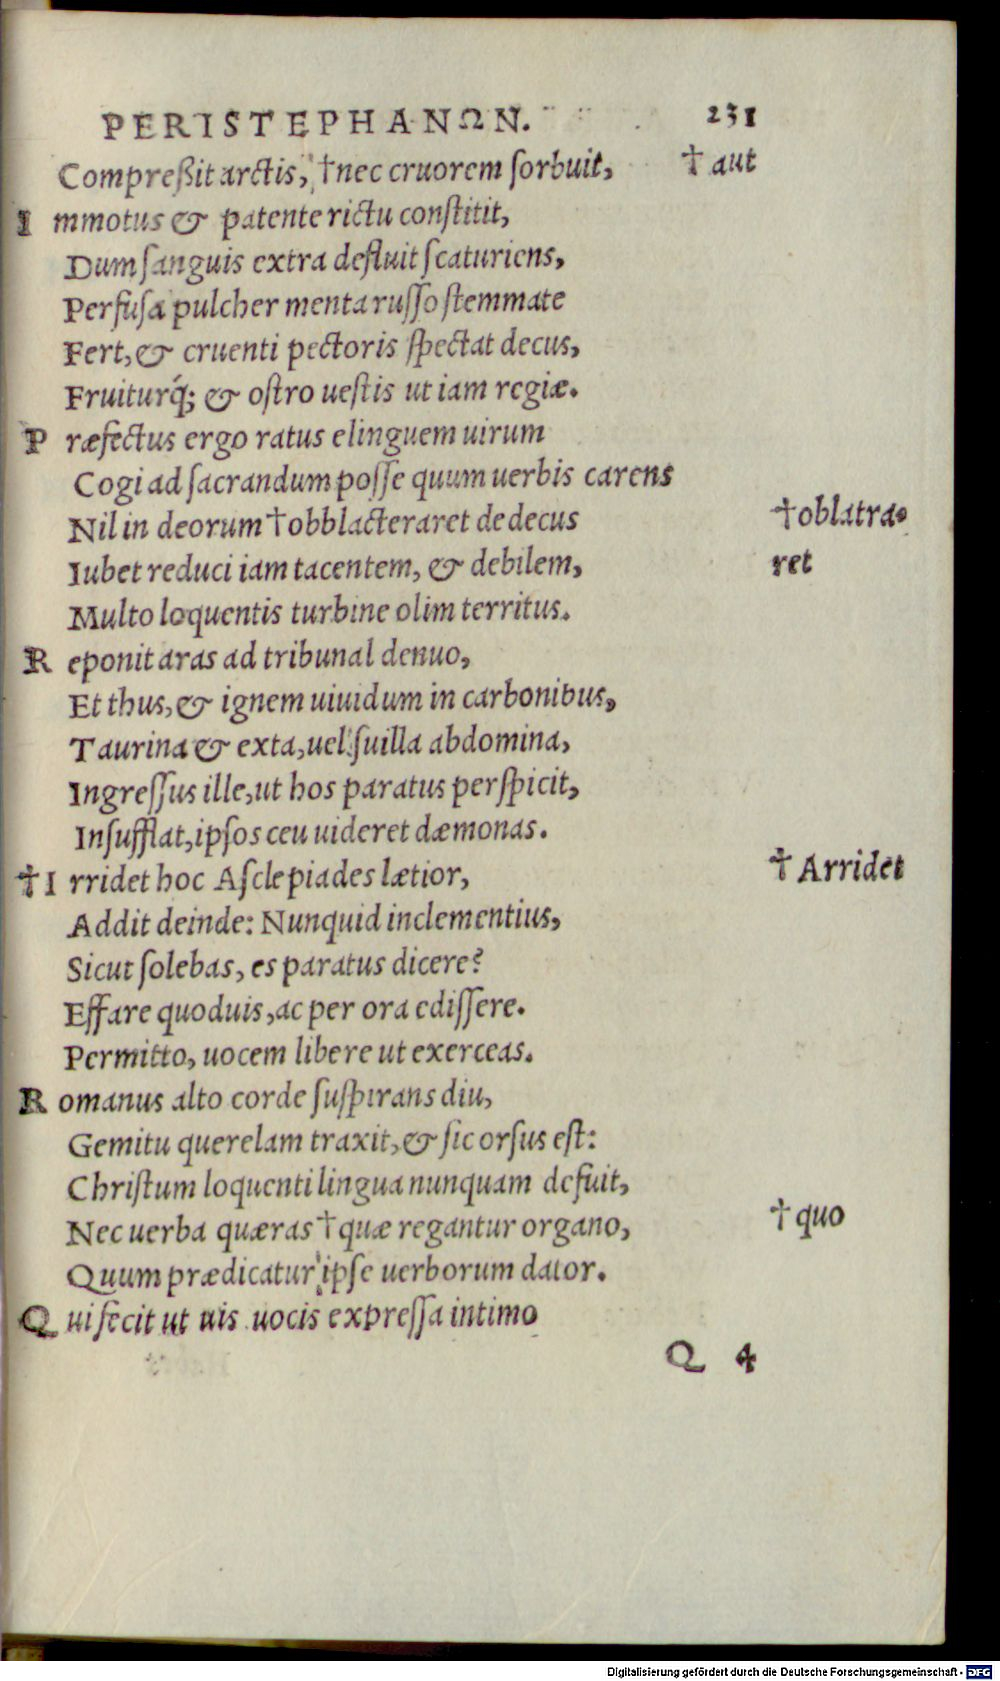 PERISTEPHANΩN. 231
Compreßit arctis, †nec cruorem ſorbuit, † aut
I mmotus & patente rictu conſtitit,
Dum ſanguis extra defluit ſcaturiens,
Perfuſa pulcher menta ruſſo ſtemmate
Fert, & cruenti pectoris ſpectat decus,
Fruiturq́; & oſtro ueſtis ut iam regiæ.
P ræfectus ergo ratus elinguem uirum
Cogi ad ſacrandum poſſe quum uerbis carens
Nil in deorum †obblacteraret dedecus †oblatra-
Iubet reduci iam tacentem, & debilem, ret
Multo loquentis turbine olim territus.
R eponit aras ad tribunal denuo,
Et thus, & ignem uiuidum in carbonibus,
Taurina & exta, uel ſuilla abdomina,
Ingreſſus ille, ut hos paratus perſpicit,
Inſufflat, ipſos ceu uideret dæmonas.
†I rridet hoc Aſclepiades lætior, † Arridet
Addit deinde: Nunquid inclementius,
Sicut ſolebas, es paratus dicere?
Effare quoduis, ac per ora ediſſere.
Permitto, uocem libere ut exerceas.
R omanus alto corde ſuſpirans diu,
Gemitu querelam traxit, & ſic orſus eſt:
Chriſtum loquenti lingua nunquam defuit,
Nec uerba quæras †quæ regantur organo, † quo
Quum prædicatur ipſe uerborum dator.
Q ui fecit ut uis uocis expreſſa intimo
Q 4
Digitalisierung gefördert durch die Deutsche Forschungsgemeinschaft - DFG